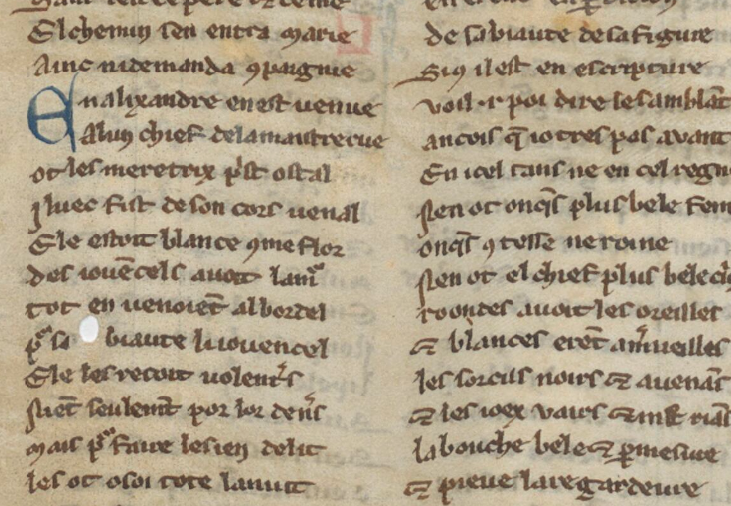 El chemin sen entra marie
Ainc ni demanda ꝯpaignie
En alixandre en est uenue
Al un chief de la maistre rue
o les meretrix pͥst ostal
Iluec fist de son cors uenal
Ele estoit blance ꝯme flor
des iouēcels auoit lamͬ
tot en uenoiēt al bordel
pͬ sa biaute li iouencel
Ele les recoit uolentͥs
Nient seulemt̄ por lor denͥs
mais pͬ faire le sien delit
les ot o soi tote la nuit
de sa biaute de sa figure
Si ꝯ il est en escripture
voil .i. poi dire le samblāt
ancois q̄ io tres pas auant
En icel tans ne en cel regne
Nen ot onqͥs plus bele fem
onqͥs ꝯtesse ne roine
Nen ot el chief plus bele
roondes auoit les oreilles
⁊ blances erēt a mͥueilles
les sorcils noirs ⁊ auenās
⁊ les ioex vairs ⁊ riās
la bouche bele ⁊ ꝑmesure
⁊ pieue la regardeure